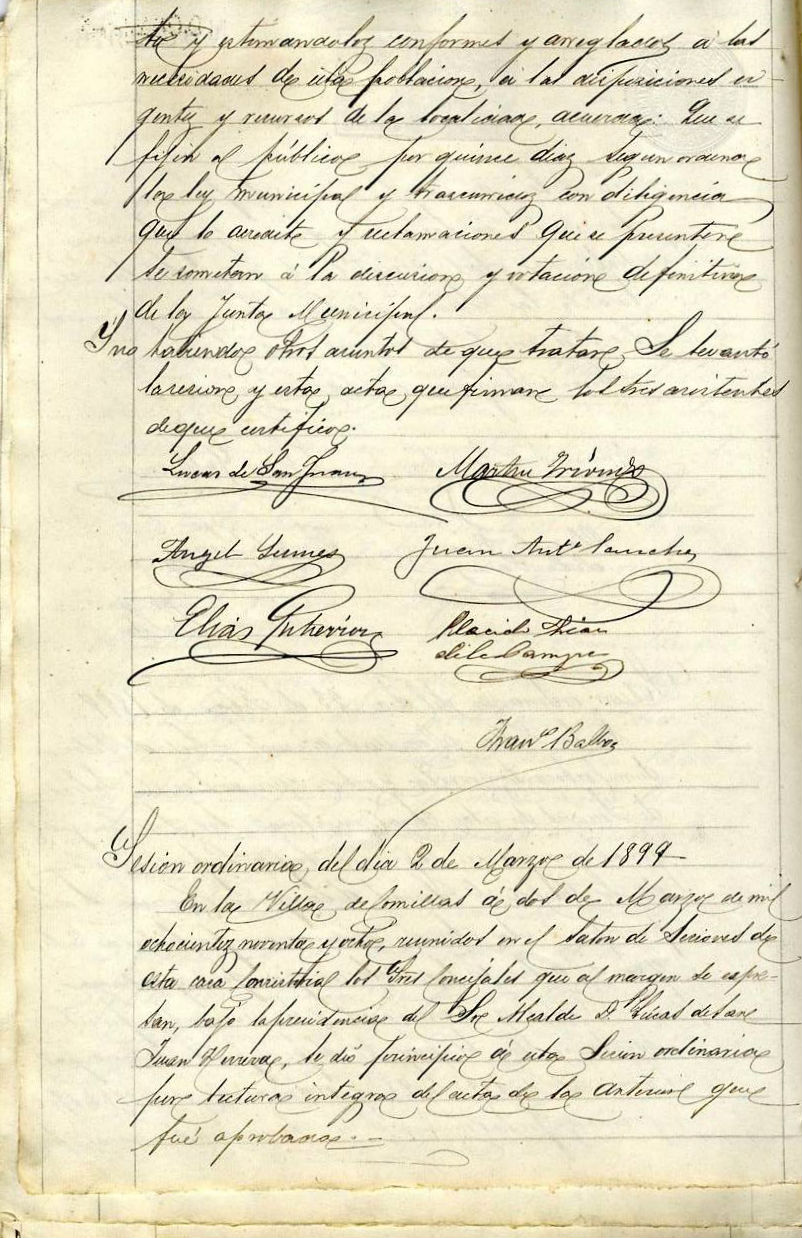 te y estimandolos conformes y arreglados á las
necesidades de esta poblacion, á las disposiciones vi-
gentes y recursos de la localidad, acuerda: Que se
fijen al público por quince dias segun ordena
la ley municipal y trascurridos con diligencia
que lo acredite y reclamaciones que se presenten
se sometan á la discusion y votacion definitiva
de la Junta Municipal.
Y no habiendo otros asuntos de que tratar, se levantó
la sesion y esta acta que firman los Sres asistentes
de que certifico.
Lucas de San Juan
Martin
Angel Gumes
Juan Antº Sanchez
Elias Gutierrez
Placido Diaz
de la Campa
Franco Balbas
Sesion ordinaria del dia 2 de Marzo de 1899
En la Villa de Comillas á dos de Marzo de mil
ochocientos noventa y ocho, reunidos en el salon de Sesiones de
esta casa Consistorial los Sres Concejales que al margen se espre-
san, bajo la presidencia del Sr Alcalde D. Lucas de San
Juan Herrera, se dió principio á esta Sesion ordinaria
por lectura integra del acta de la anterior que
fué aprobada.-